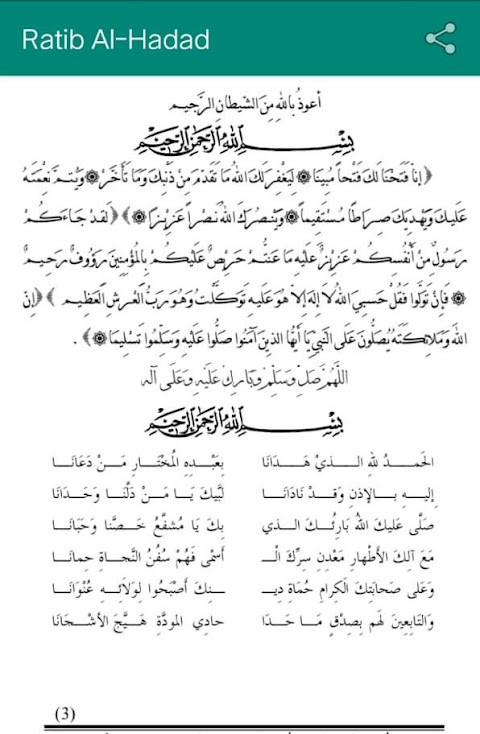 Ratib Al-Hadad
أعوذُ بِاللهِ مِنَ الشيطانِ الرَّجيمِ
بِسْمِ اللهِ الرَّحْمٰنِ الرَّحِيْمِ
﴿إِنَّا فَتَحْنَا لَكَ فَتْحًا مُبِينًا ۞ لِيَغْفِرَ لَكَ اللهُ مَا تَقَدَّمَ مِنْ ذَنْبِكَ وَمَا تَأَخَّرَ ۞ وَيُتِمَّ نِعْمَتَهُ
عَلَيْكَ وَيَهْدِيَكَ صِرَاطًا مُسْتَقِيمًا ۞ وَيَنْصُرَكَ اللهُ نَصْرًا عَزِيزًا ۞﴾ ﴿لَقَدْ جَاءَكُمْ
رَسُولٌ مِنْ أَنْفُسِكُمْ عَزِيزٌ عَلَيْهِ مَا عَنِتُّمْ حَرِيصٌ عَلَيْكُمْ بِالْمُؤْمِنِينَ رَؤُوفٌ رَحِيمٌ
۞ فَإِنْ تَوَلَّوْا فَقُلْ حَسْبِيَ اللهُ لَا إِلَهَ إِلَّا هُوَ عَلَيْهِ تَوَكَّلْتُ وَهُوَ رَبُّ الْعَرْشِ الْعَظِيمِ ﴾ ﴿إِنَّ
اللهَ وَمَلَائِكَتَهُ يُصَلُّونَ عَلَى النَّبِيِّ يَا أَيُّهَا الَّذِينَ آمَنُوا صَلُّوا عَلَيْهِ وَسَلِّمُوا تَسْلِيمًا ۞﴾ .
اللَّهُمَّ صَلِّ وَسَلِّمْ وَبَارِكْ عَلَيْهِ وَعَلَى آلِهِ
بِسْمِ اللهِ الرَّحْمٰنِ الرَّحِيْمِ
الحَمـــدُ للهِ الــــذيْ هَـــدَانَا بِعَبْــدِهِ المُخْتَــارِ مَــنْ دَعَانَــا
إليــهِ بــالإذنِ وَقــدْ نَادَانَــا لَبَّيكَ يَــا مَــنْ دَلَّنَــا وَحَدَانَا
صَلَّى عَلَيكَ اللهُ بَارِئُــكَ الــذي بِكَ يَا مُشَفَّعُ خَصَّنا وَحَبَانَا
مَعَ آلِكَ الأطْهارِ مَعْدِنِ سِرِّكَ الْــ أَسْمى فَهُمْ سُفُنُ النَّجاةِ حِمانا
وَعَلى صَحَابَتِكَ الكِرامِ حُمَاةِ دِيــ ــنِكَ أَصْبَحُوا لِوَلائِــهِ عُنْوَانَا
وَالتَابِعينَ لَهم بِصِدْقٍ مَــا حَــدَا حادِي المودَّةِ هَيَّجَ الأشْجَانَا
(3)